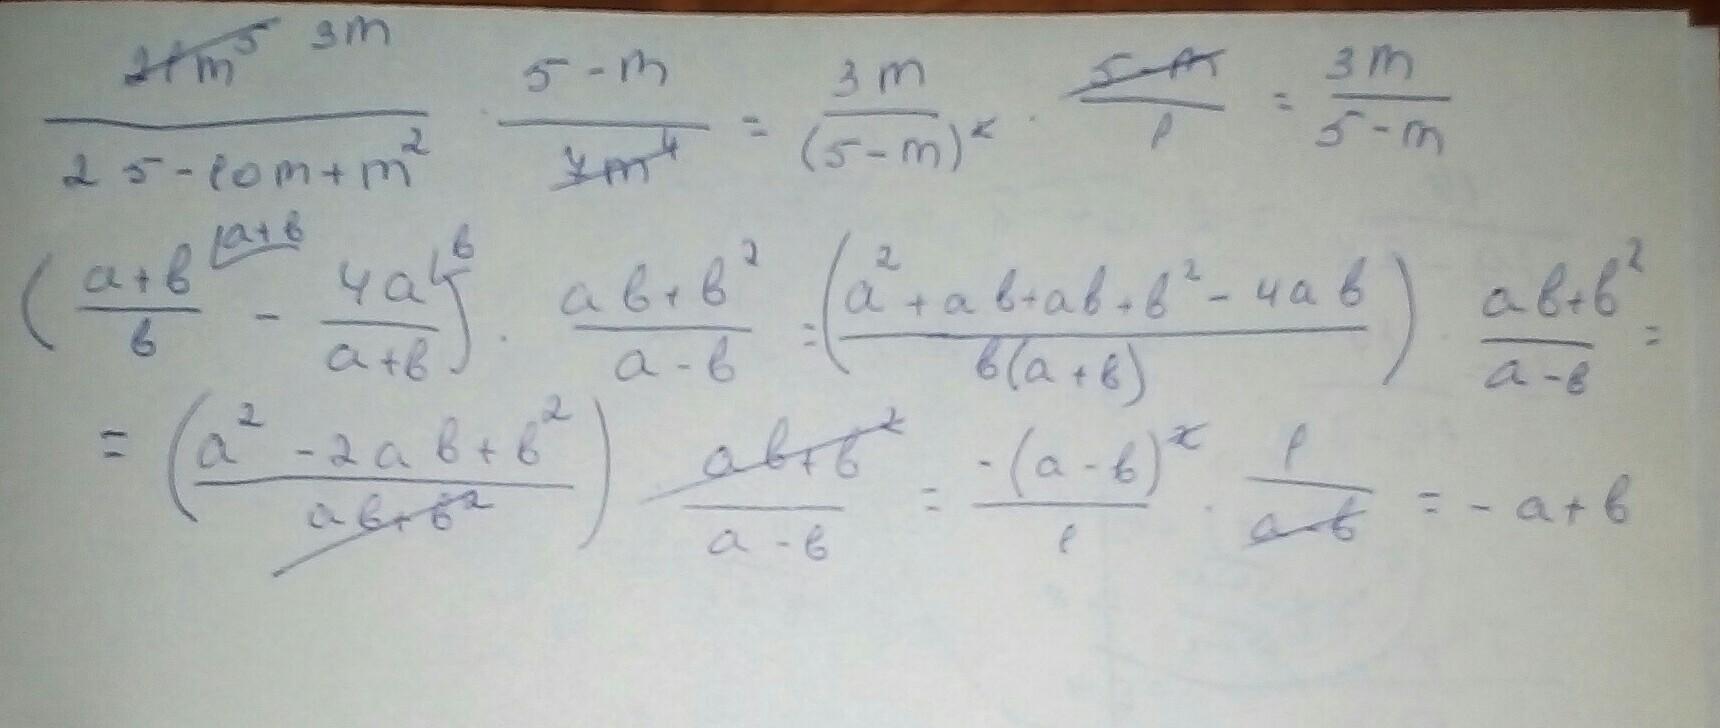 21m⁵ 3m / 25-10m+m² · 5-m / 7m⁴ = 3m / (5-m)² · 5-m / 1 = 3m / 5-m
(a+b / b |a+b - 4a |b / a+b) · ab+b² / a-b = (a²+ab+ab+b²-4ab / b(a+b)) · ab+b² / a-b =
= (a²-2ab+b² / ab+b²) ab+b² / a-b = -(a-b)² / 1 · 1 / a-b = -a+b